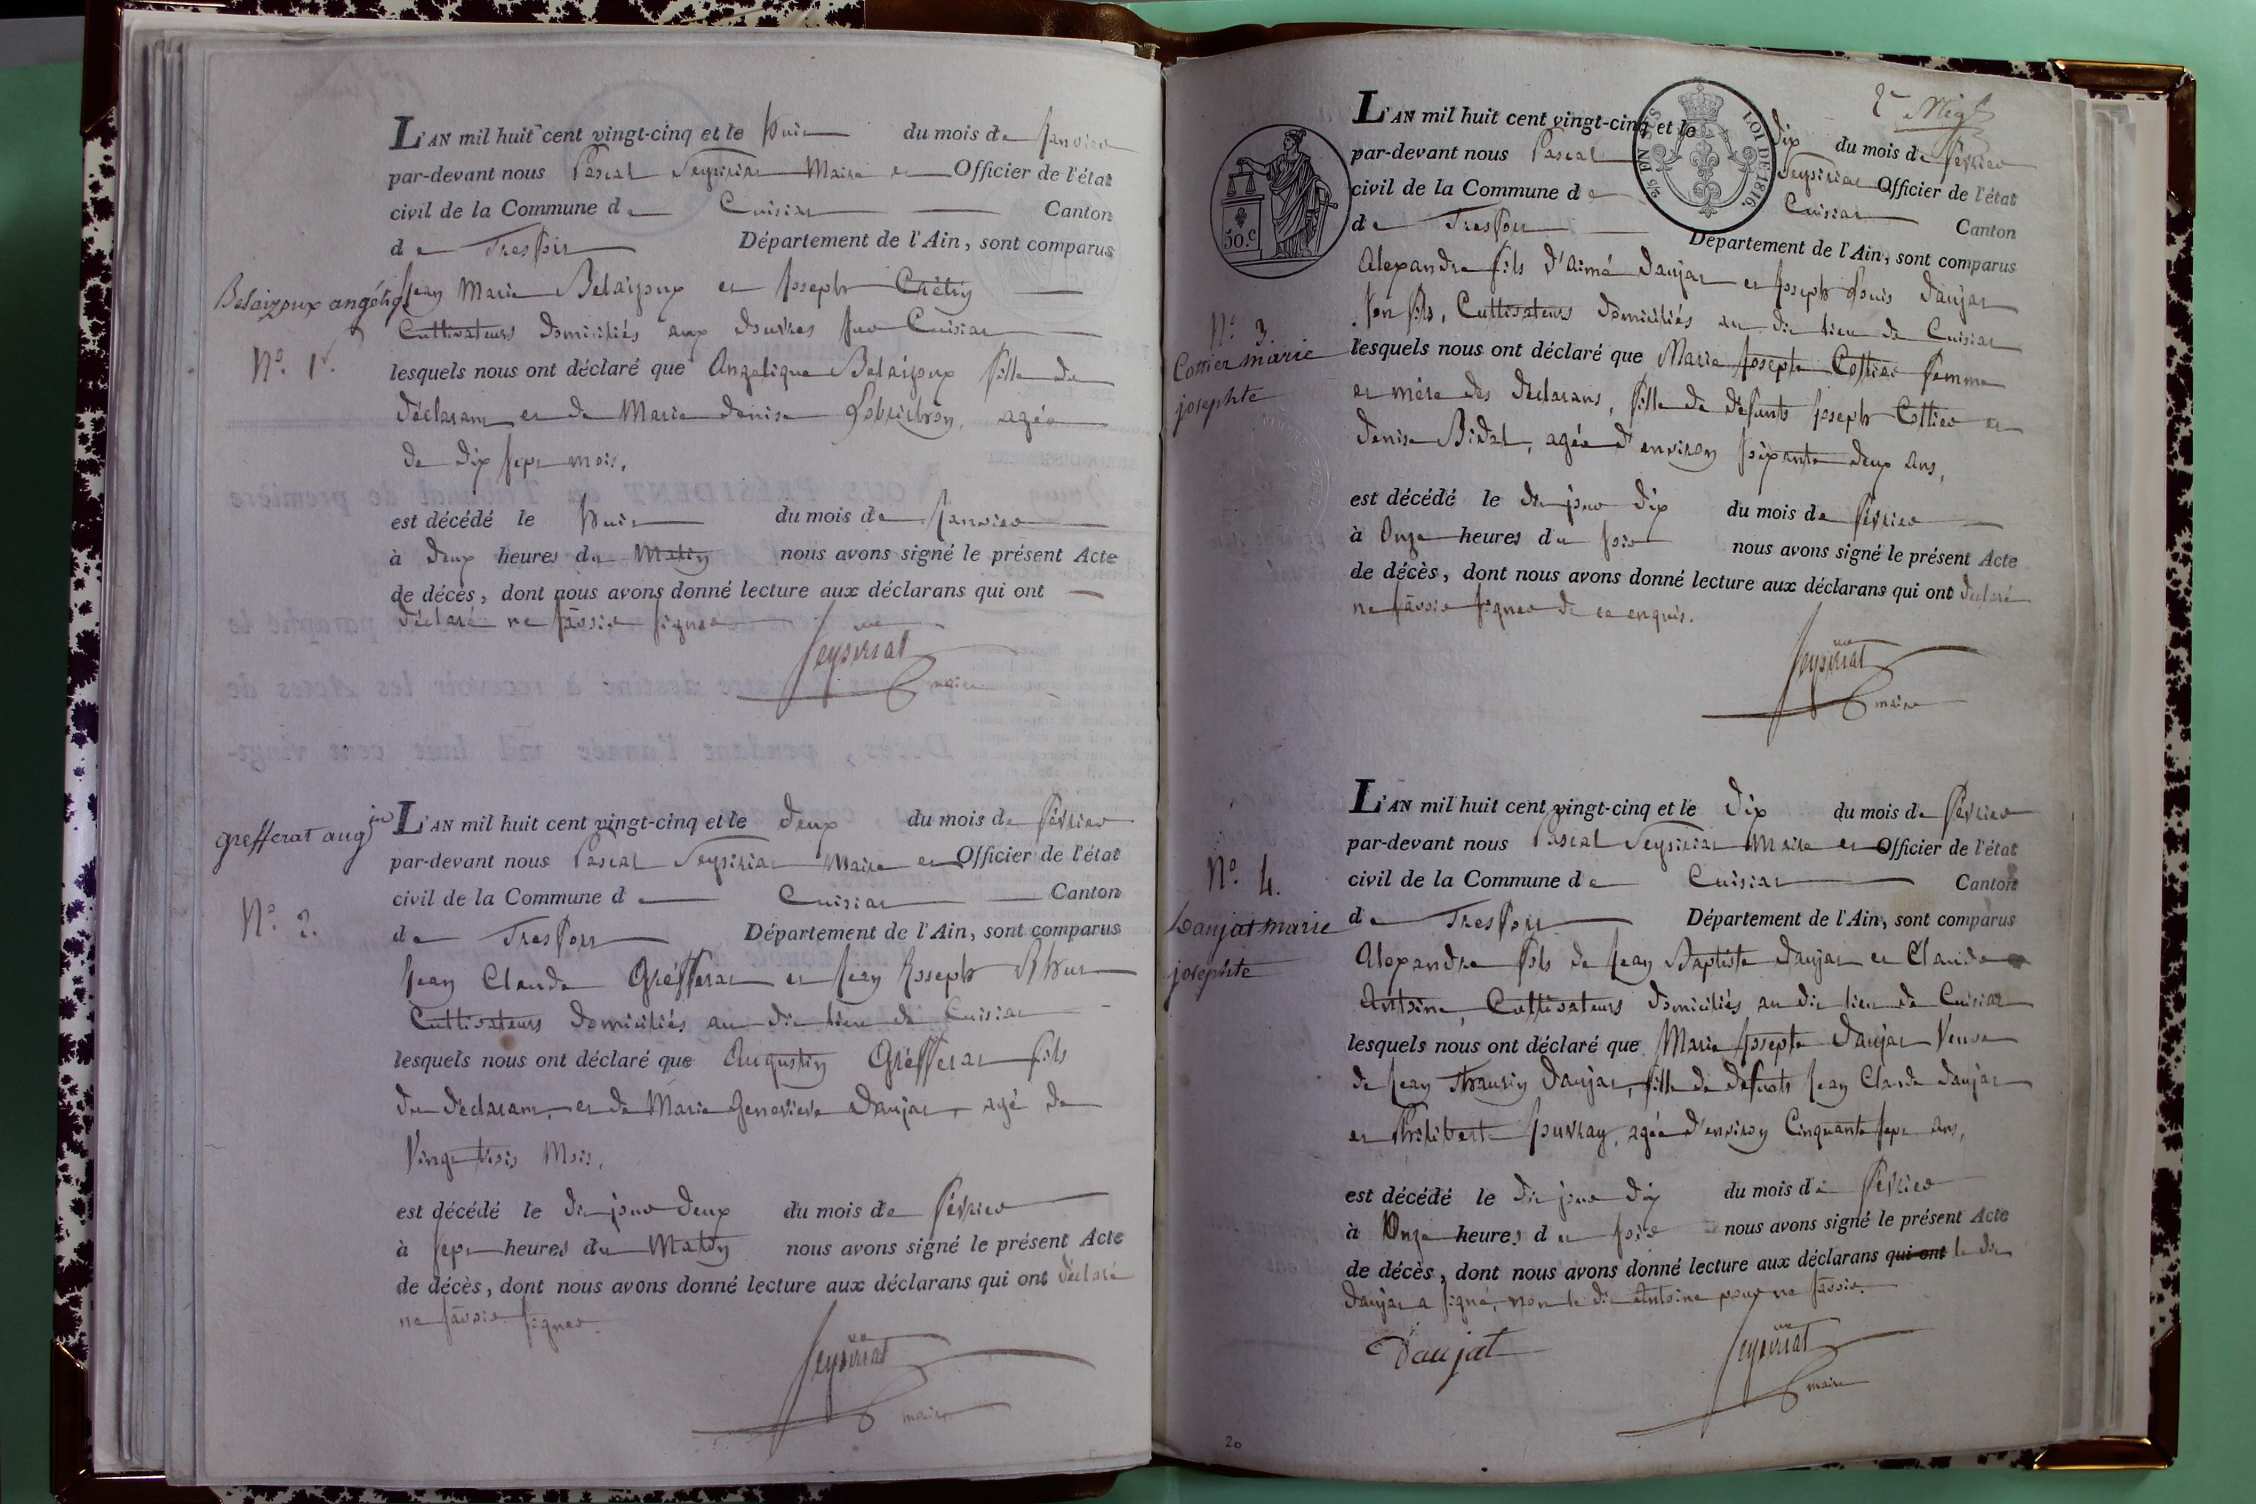 L'AN mil huit cent vingt-cinq et le huit du mois de Janvier
par-devant nous Pascal Seyssiat Maire et Officier de l'état
civil de la Commune de Cuisiat Canton
de Treffort Département de l'Ain, sont comparus
Jean Marie et Joseph Crétin
Cultivateurs domiciliés aux douvres sur Cuisiat
lesquels nous ont déclaré que Angelique fille du
déclarant et de Marie denise agée
de dix sept mois,
est décédé le huit du mois de Janvier
à deux heures du Matin nous avons signé le présent Acte
de décès, dont nous avons donné lecture aux déclarans qui ont
déclaré ne savoir signer
maire
angéliq
N.o 1.
L'AN mil huit cent vingt-cinq et le deux du mois de février
par-devant nous Pascal Maire et Officier de l'état
civil de la Commune d Cuisiat Canton
de Treffort Département de l'Ain, sont comparus
Jean Claude Grefferat et Jean Joseph
Cultivateurs domiciliés au dit lieu de Cuisiat
lesquels nous ont déclaré que Augustin Grefferat fils
du déclarant, et de Marie Genevieve Daujat, agé de
Vingt trois Mois,
est décédé le dit jour deux du mois de février
à sept heures du Matin nous avons signé le présent Acte
de décès, dont nous avons donné lecture aux déclarans qui ont déclaré
ne savoir signer.
maire
grefferat aug.in
N.o 2.
L'AN mil huit cent vingt-cinq et le dix du mois de février
par-devant nous Pascal Officier de l'état
civil de la Commune de Cuisiat Canton
de Treffort Département de l'Ain, sont comparus
Alexandre fils d'aimé Daujat et Joseph Louis Daujat
son fils, Cultivateurs domiciliés au dit lieu de Cuisiat
lesquels nous ont déclaré que Marie Josephte Cottier femme
et mère des déclarans, fille de défunts Joseph Cottier et
denise Bidal, agée d'environ soixante deux ans,
est décédé le dit jour dix du mois de février
à Onze heures du soir nous avons signé le présent Acte
de décès, dont nous avons donné lecture aux déclarans qui ont déclaré
ne savoir signer de ce enquis.
maire
50.c
2/5 EN SUS LOI DE 1816.
N.o 3.
Cottier marie
josephte
L'AN mil huit cent vingt-cinq et le dix du mois de février
par-devant nous Pascal Maire et Officier de l'état
civil de la Commune de Cuisiat Canton
de Treffort Département de l'Ain, sont comparus
Alexandre fils de Jean Baptiste Daujat et Claude
Antoine, Cultivateurs domiciliés au dit lieu de Cuisiat
lesquels nous ont déclaré que Marie Josephte Daujat Veuve
de Jean Daujat, fille de défunts Jean Claude Daujat
et Philiberte, agée d'environ Cinquante sept ans,
est décédé le dit jour dix du mois de février
à Onze heures du soir nous avons signé le présent Acte
de décès, dont nous avons donné lecture aux déclarans qui ont le dit
Daujat a signé, non le dit Antoine pour ne savoir.
Daujat
maire
N.o 4.
Daujat marie
josephte
20